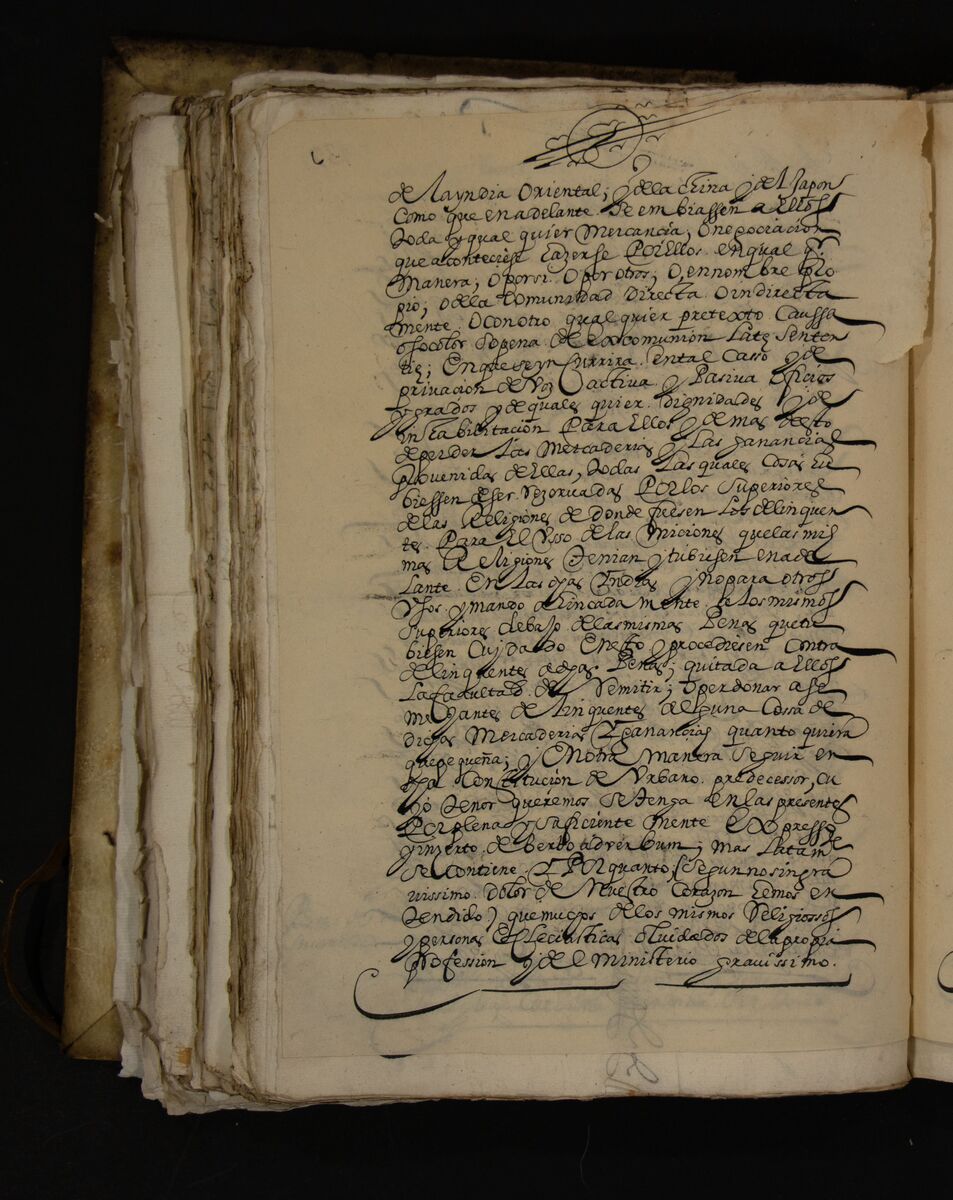 de la yndia Oriental; y de la china y del Japon
Como que en adelante. Se embiassen a Ellos
toda y qual quier Mercancia; O negociacion
que aconteciese hazerse Por Ellos. en qual qr.
Manera; O por si. O por otros; O, en nombre pro
pio; o de la Comunidad Directa. O indirecta
mente. O con otro qual quier pretexto Caussa
o socolor so pena de excomunion Late senten
tie; En que se yncurrira. en tal Casso y de
privacion de Voz activa y Pasiva Oficios
y grados y de quales quier. Dignidades y de
inhabilitacion Para Ellos y de mas desto
de perder Las Mercaderias y Las ganancias
Provenidas de Ellas, todas Las quales Cosas hu
biessen de ser Rezervadas Por los Superiores
de las Religiones de donde fuesen Los delinquen
tes. Para El Vsso de las Miciones que las mis
mas Religiones tenian y tubiesen en ade
Lante. En Las dhas Indias y no para otros
Vsos. y mando ahincadamente a Los mismos
Superiores debajo de las mismas Penas que tu
biesen Cuydado En esto y procediesen Contra
delinquentes a dhas. Penas; quitada a Ellos
La facultad. de Remitir; O perdonar a se
mejantes delinquentes alguna Cossa de
dichas Mercaderias O ganancias quanto quiera
que pequeña; y En otra manera Seguir en
dha Constitucion de Vrbano. predecessor, cu
yo tenor queremos se tenga en las presentes
Por plena y suficiente mente Expresso
y inserto. de berbo ad verbum; mas Latamte
se contiene. Y Por quanto (segun no sin gra
uissimo. dolor de Nuestro Corazon hemos en
tendido) que muchos de los mismos Religiossos
y personas Eclesiasticas oluidados de la propia
profession y de el Ministerio grauissimo.